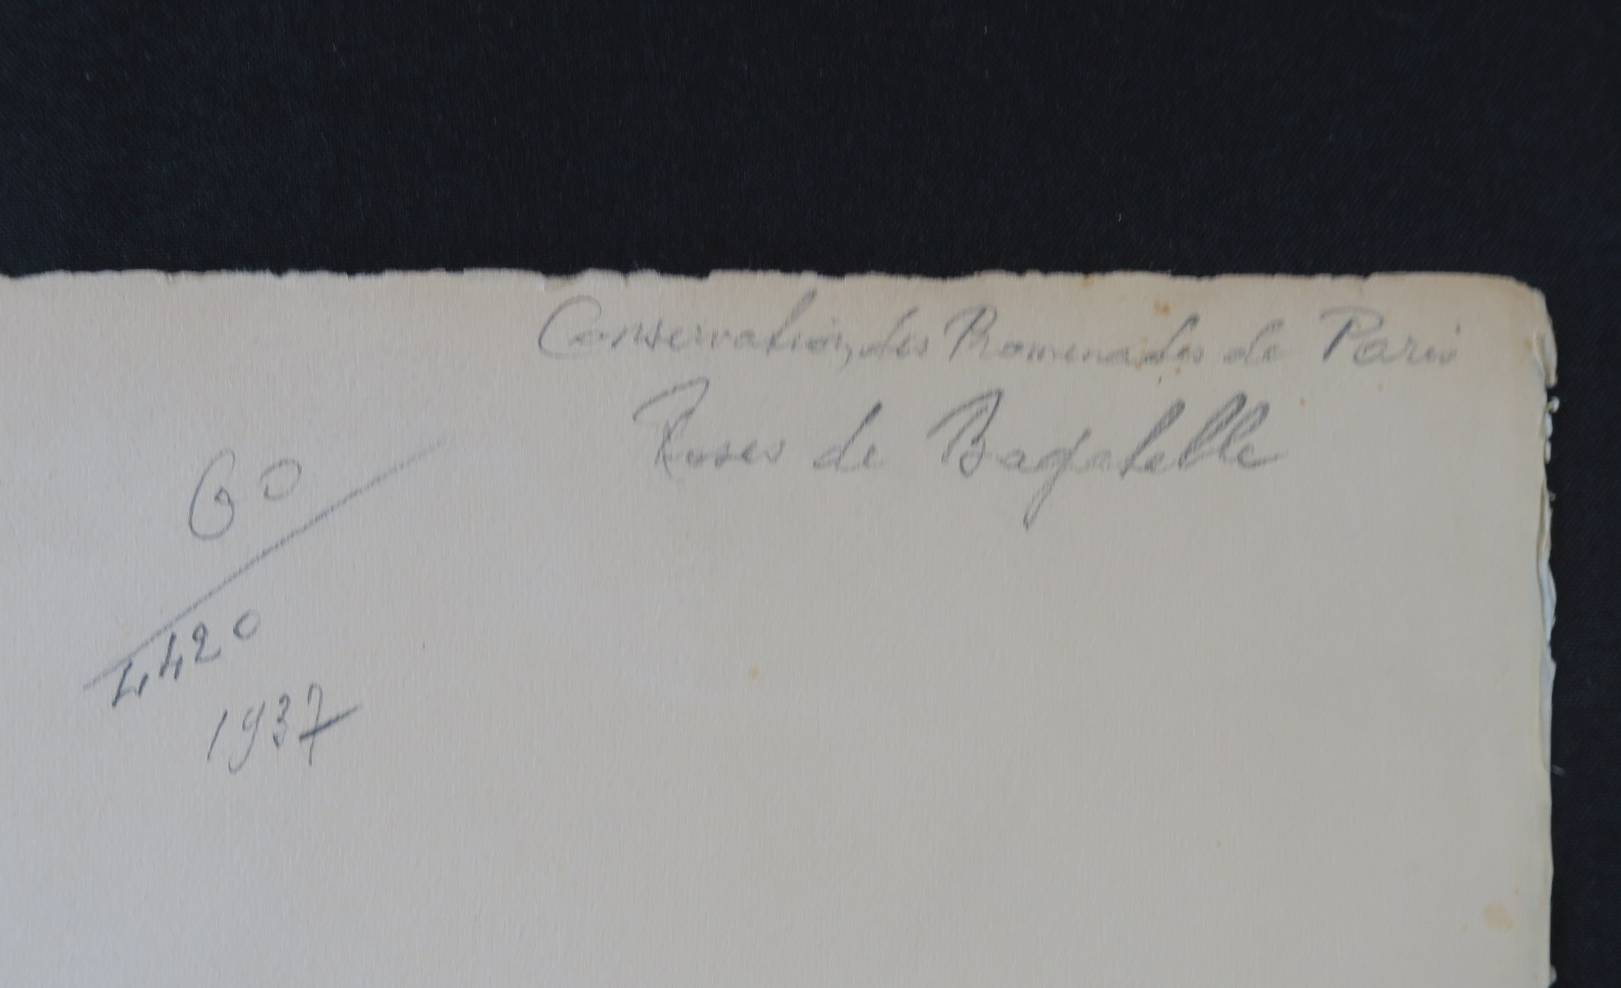 Conservation des Promenades de Paris
Roses de Bagatelle
60
4420
1937